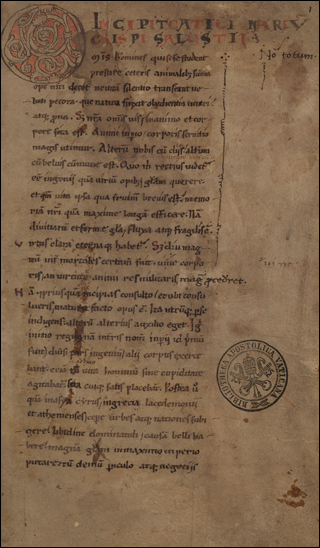 INCIPIT CATILINARIV
CRISPI SALVSTII
Omīs homines qui se student
prestare ceteris animalib; summa
ope niti decet ne uitā silentio transeant ue
luti pecora. que natura finxit
atq; prona. Sed nr̄a omīs uis in animo et cor
pore sita est. Animi imꝑio corporis seruitio
magis utimur. Alterū nobis cū diis alterū
cū beluis cōmune est. Quo m rectius uidet̄
ee ingenii quā uiriū opib; gl̄am querere.
et qm̄ uita ipsa qua fruimur breuis est. memo
riā nr̄i quā maxime longā efficere. Nā
diuitiarū et forme gl̄a fluxa atq; fragilis ē.
uirtus clara eternaq; habet̄. Sed diu mag
nū int̄ mortales certam̄ fuit. uine corpo
ris an uirtute animi res militaris mag ꝓcederet.
Nā et priusquā incipias consulto. et ubi consu
lueris mature facto opus ē. Ita utrūq; ꝑ se
indigens. alterū alterius auxilio eget. Ig̃
initio reges nā in terris nom̄ imꝑii id primū
fuit. diuersi pars ingeniū alii corpus exerce
bant. etiā tū uita hominū sine cupiditate
agitabat̄. sua cuiq; satis placebāt. Postea ů
quā in asia cyrus. in grecia lacedemonii
et athenienses cepere urbes atq; nationes subi
gere. libidinē dominandi causam belli ha
bere. magnā gl̄am in maximo imperio
putare. tū demū ꝑiculo atq; negotiis
Nō totum
BIBLIOTHECA APOSTOLICA VATICANA